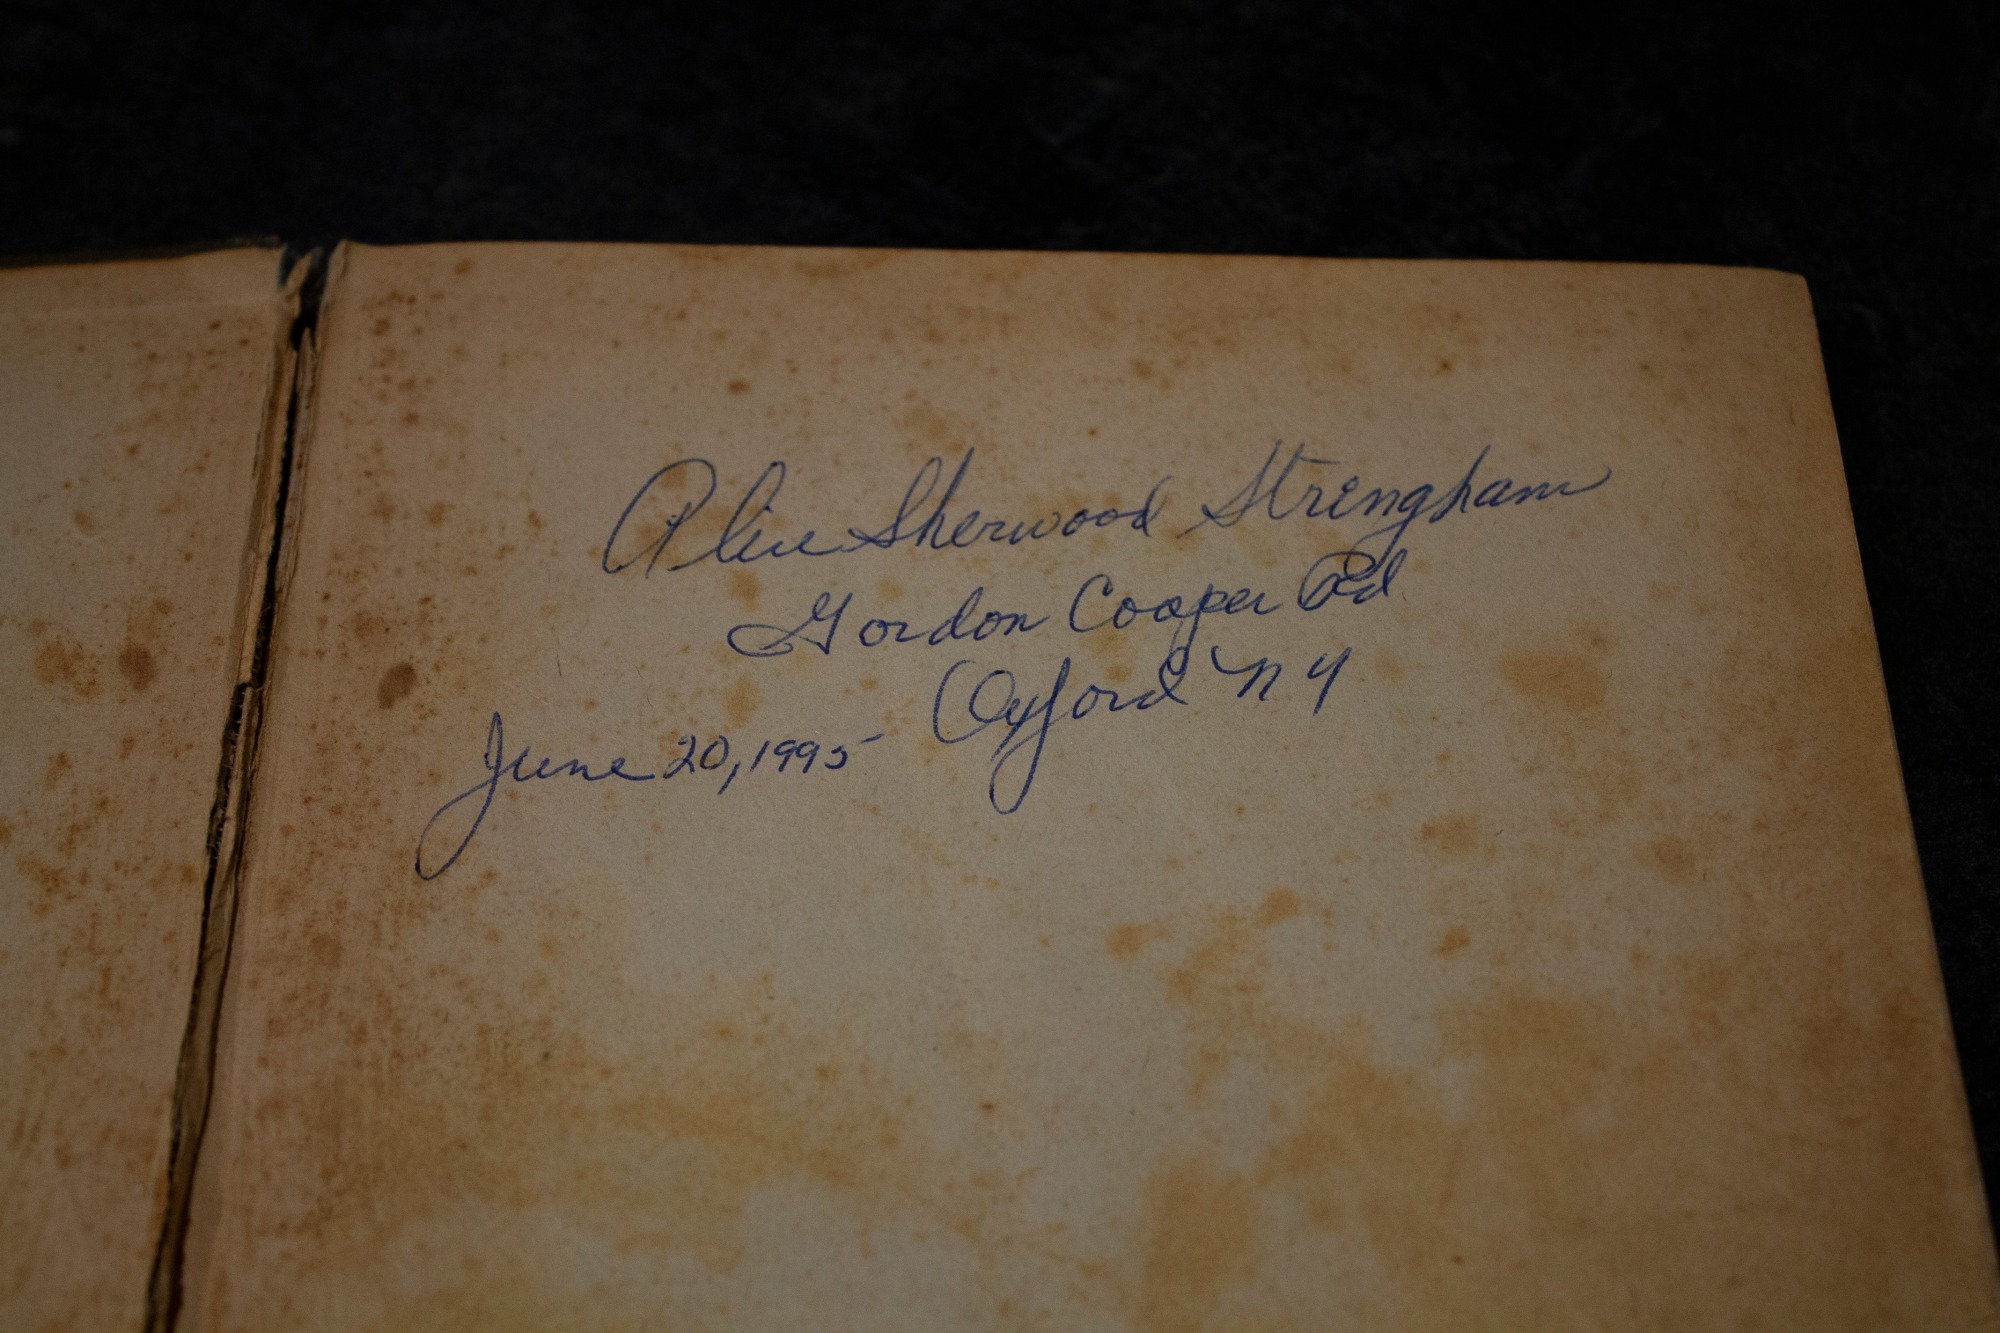 Alice Sherwood Stringham
Gordon Cooper Rd
Oxford NY
June 20, 1995